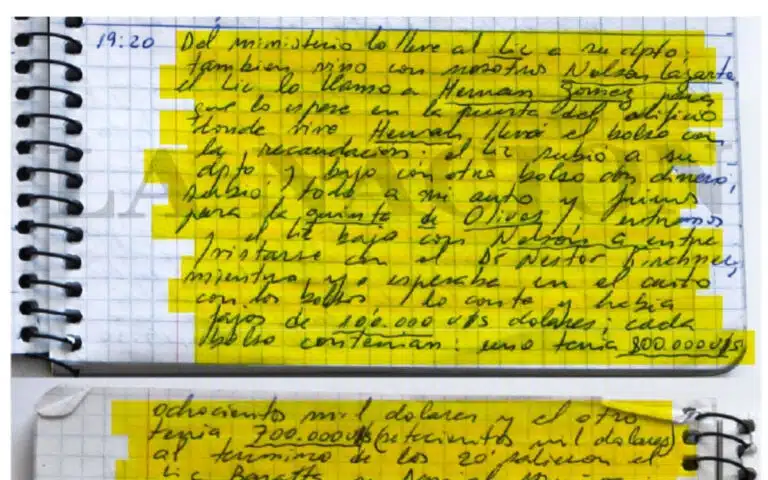 19:20 Del ministerio lo lleve al Lic a su dpto;
tambien vino con nosotros Nelson Lazarte
el Lic lo llamo a Hernan Gomez para
que lo espere en la puerta del edificio
donde vive Hernan llevó el bolso con
la recaudacion; el Lic subió a su
dpto y bajo con otro bolso con dinero,
subio todo a mi auto y fuimos
para la quinta de Olivos y entramos
y el Lic bajo con Nelson a entre
vistarse con el Dr Nestor Kirchner,
mientras yo esperaba en el auto
con los bolsos, lo conte y habia
fajos de 100.000 u/s dolares; cada
bolso contenian: uno tenia 800.000 u/s
ochocientos mil dolares y el otro
tenia 700.000 u/s (setecientos mil dolares)
al termino de los 20' salieron el
Lic Baratta
LA NACION